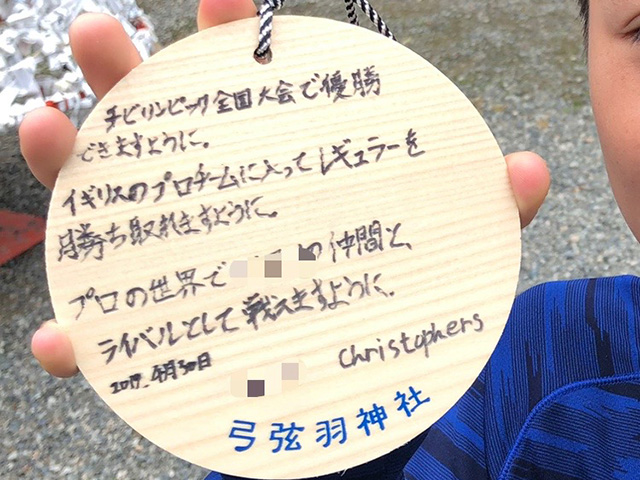 チビリンピック全国大会で優勝
できますように。
イギリスのプロチームに入ってレギュラーを
勝ち取れますように。
プロの世界で の仲間と、
ライバルとして戦えますように。
2017.4月30日
Christophers
弓弦羽神社